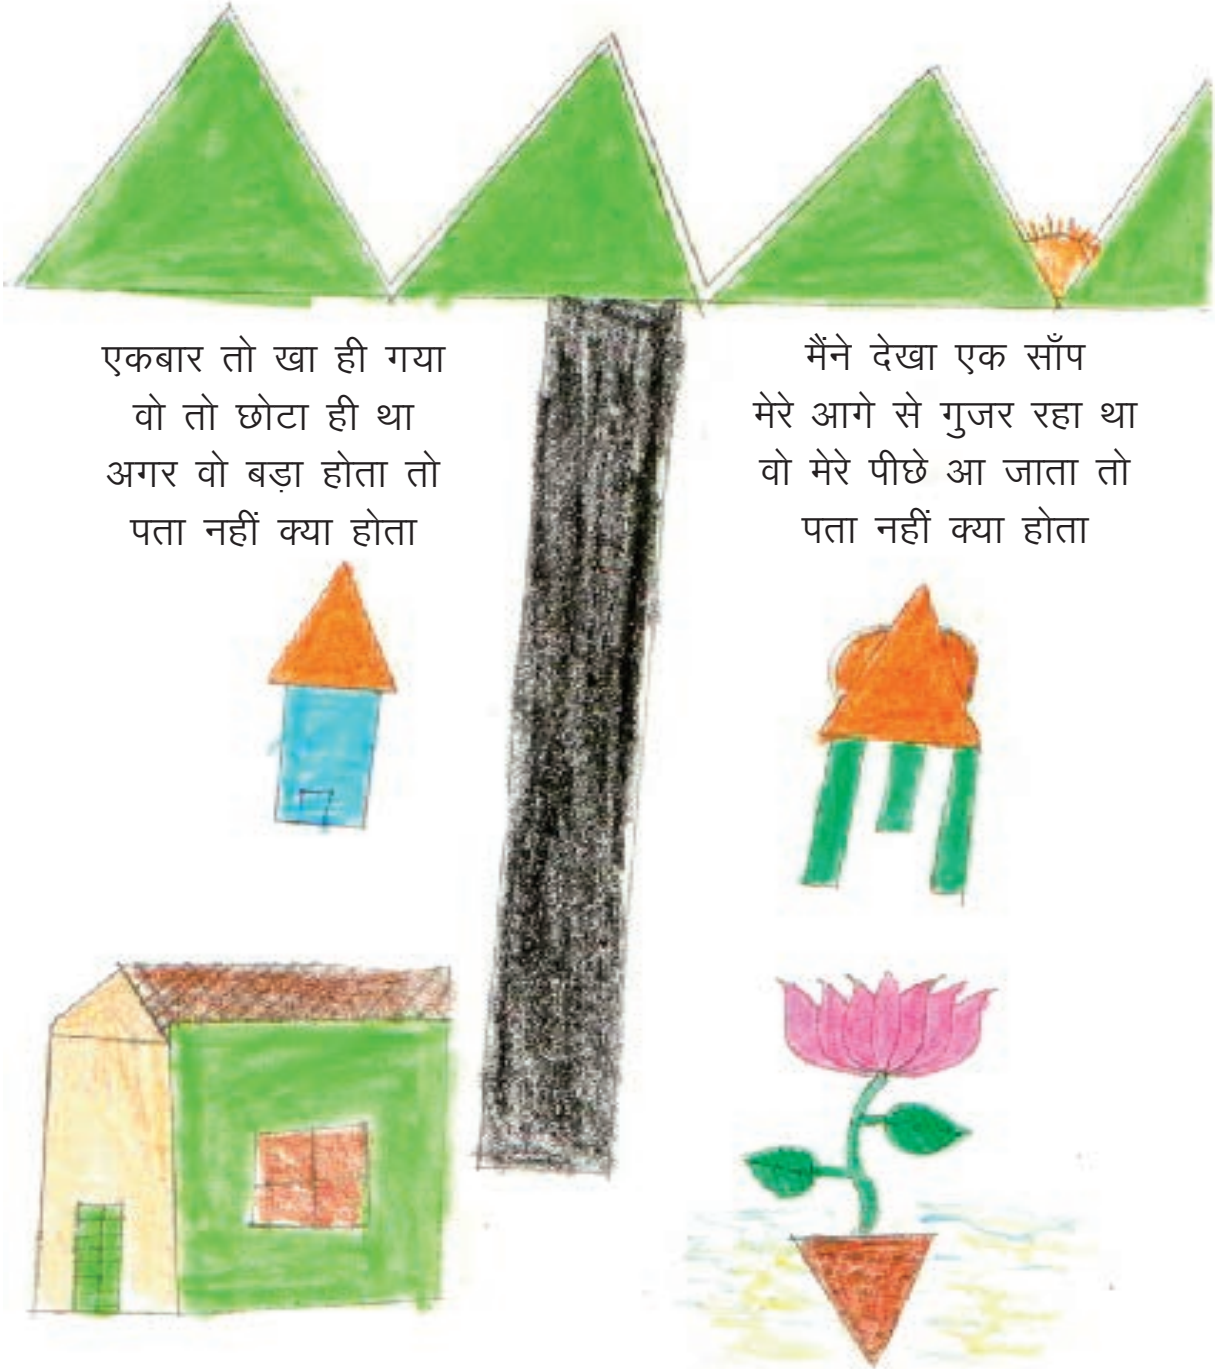 एकबार तो खा ही गया
वो तो छोटा ही था
अगर वो बड़ा होता तो
पता नहीं क्या होता
मैंने देखा एक साँप
मेरे आगे से गुजर रहा था
वो मेरे पीछे आ जाता तो
पता नहीं क्या होता